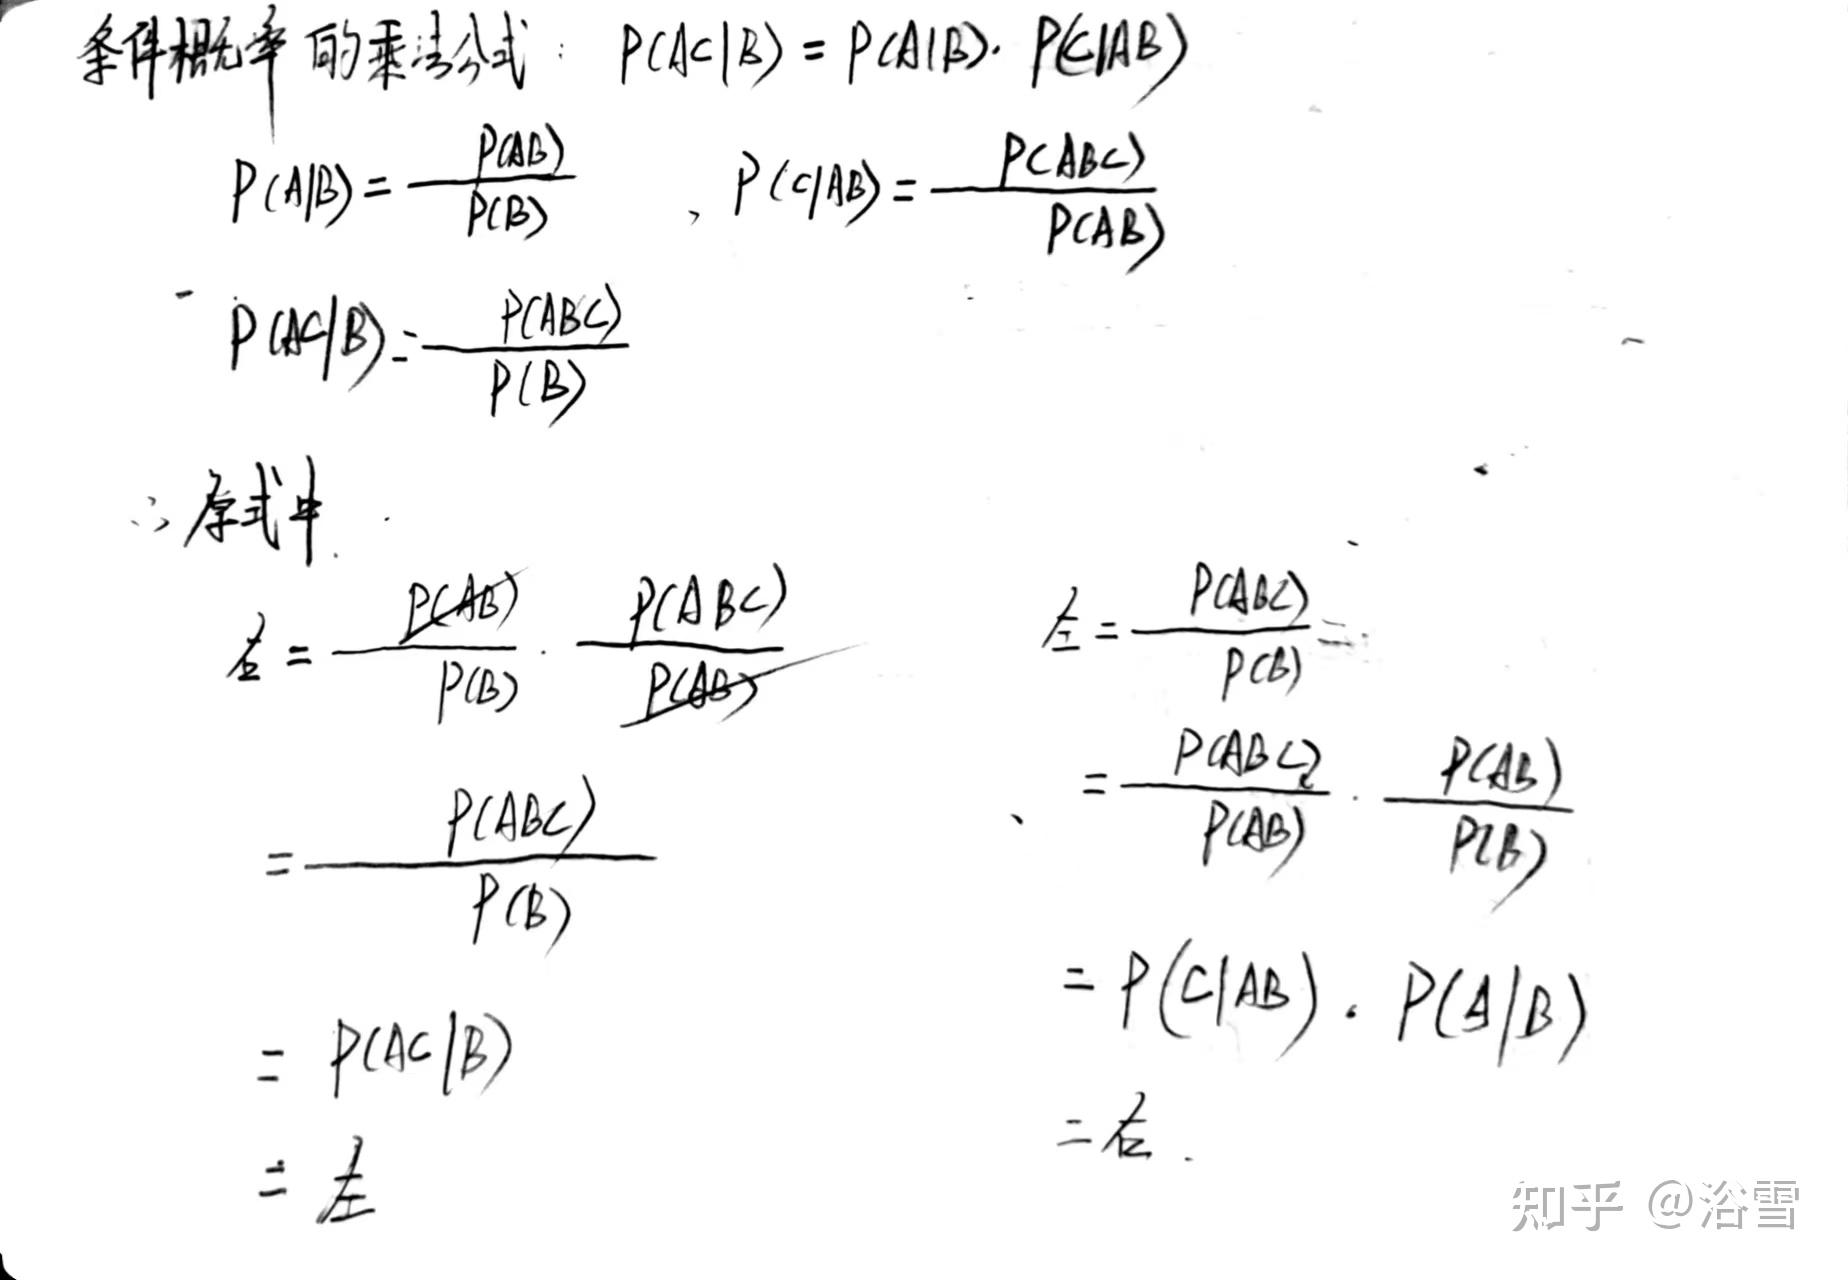 条件概率的乘法公式: P(AC|B) = P(A|B)· P(C|AB)
P(A|B) = P(AB)/P(B) , P(C|AB) = P(ABC)/P(AB)
P(AC|B) = P(ABC)/P(B)
∴ 原式中
右 = P(AB)/P(B) · P(ABC)/P(AB)
= P(ABC)/P(B)
= P(AC|B)
= 左
左 = P(ABC)/P(B) =
= P(ABC)/P(AB) · P(AB)/P(B)
= P(C|AB) · P(A|B)
= 右.
知乎 @浴雪